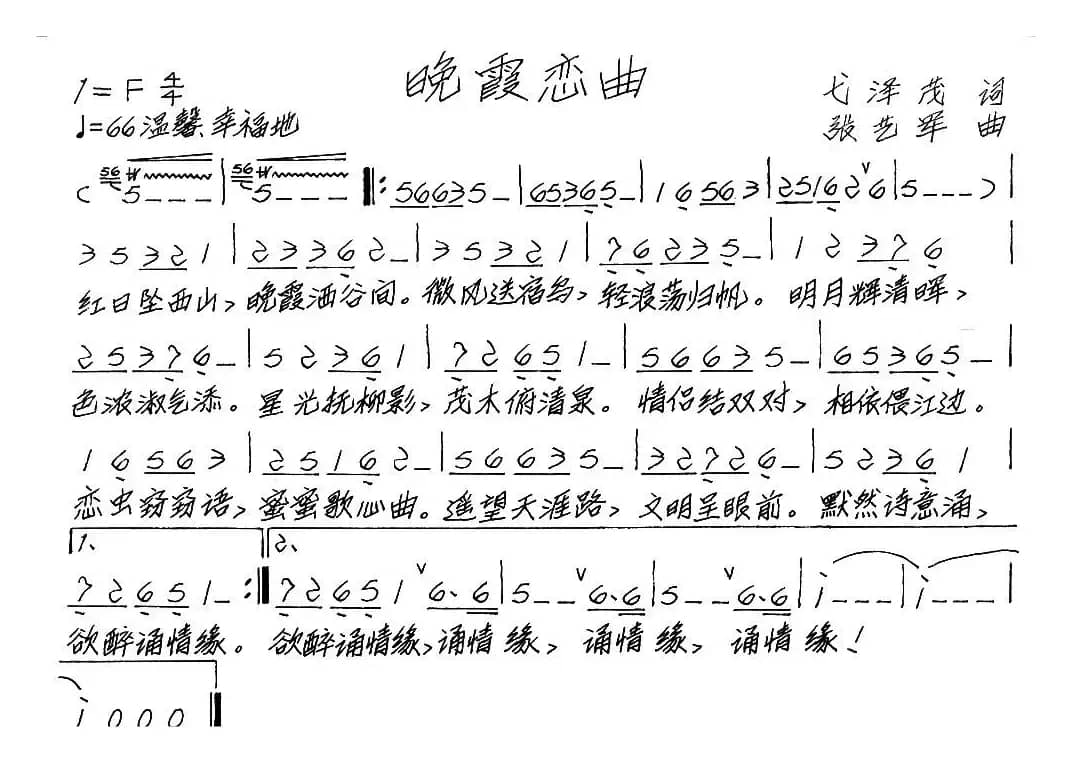 晚霞恋曲
1=F 4/4
弋泽茂 词
♩=66 温馨、幸福地
张艺军 曲
(56 5--- | 56 5--- ‖: 56635- | 65365- | 16563 | 2516 2 6 | 5---) |
35321 | 23362- | 35321 | 76235- | 12376 |
红日坠西山、晚霞洒谷间。微风送宿鸟、轻浪荡归帆。明月辉清晖、
25376- | 52361 | 72651- | 56635- | 65365- |
色浓淑气添。星光抚柳影、茂木俯清泉。情侣结双对、相依偎江边。
16563 | 25162- | 56635- | 32726- | 52361 |
恋虫窃窃语、蜜蜜歌心曲。遥望天涯路、文明呈眼前。默然诗意涌、
1、 2、
72651- :‖ 72651 6、6 | 5-- 6、6 | 5-- 6、6 | i--- | i--- |
欲醉诵情缘。欲醉诵情缘、诵情缘、诵情缘、诵情缘!
i000 ‖